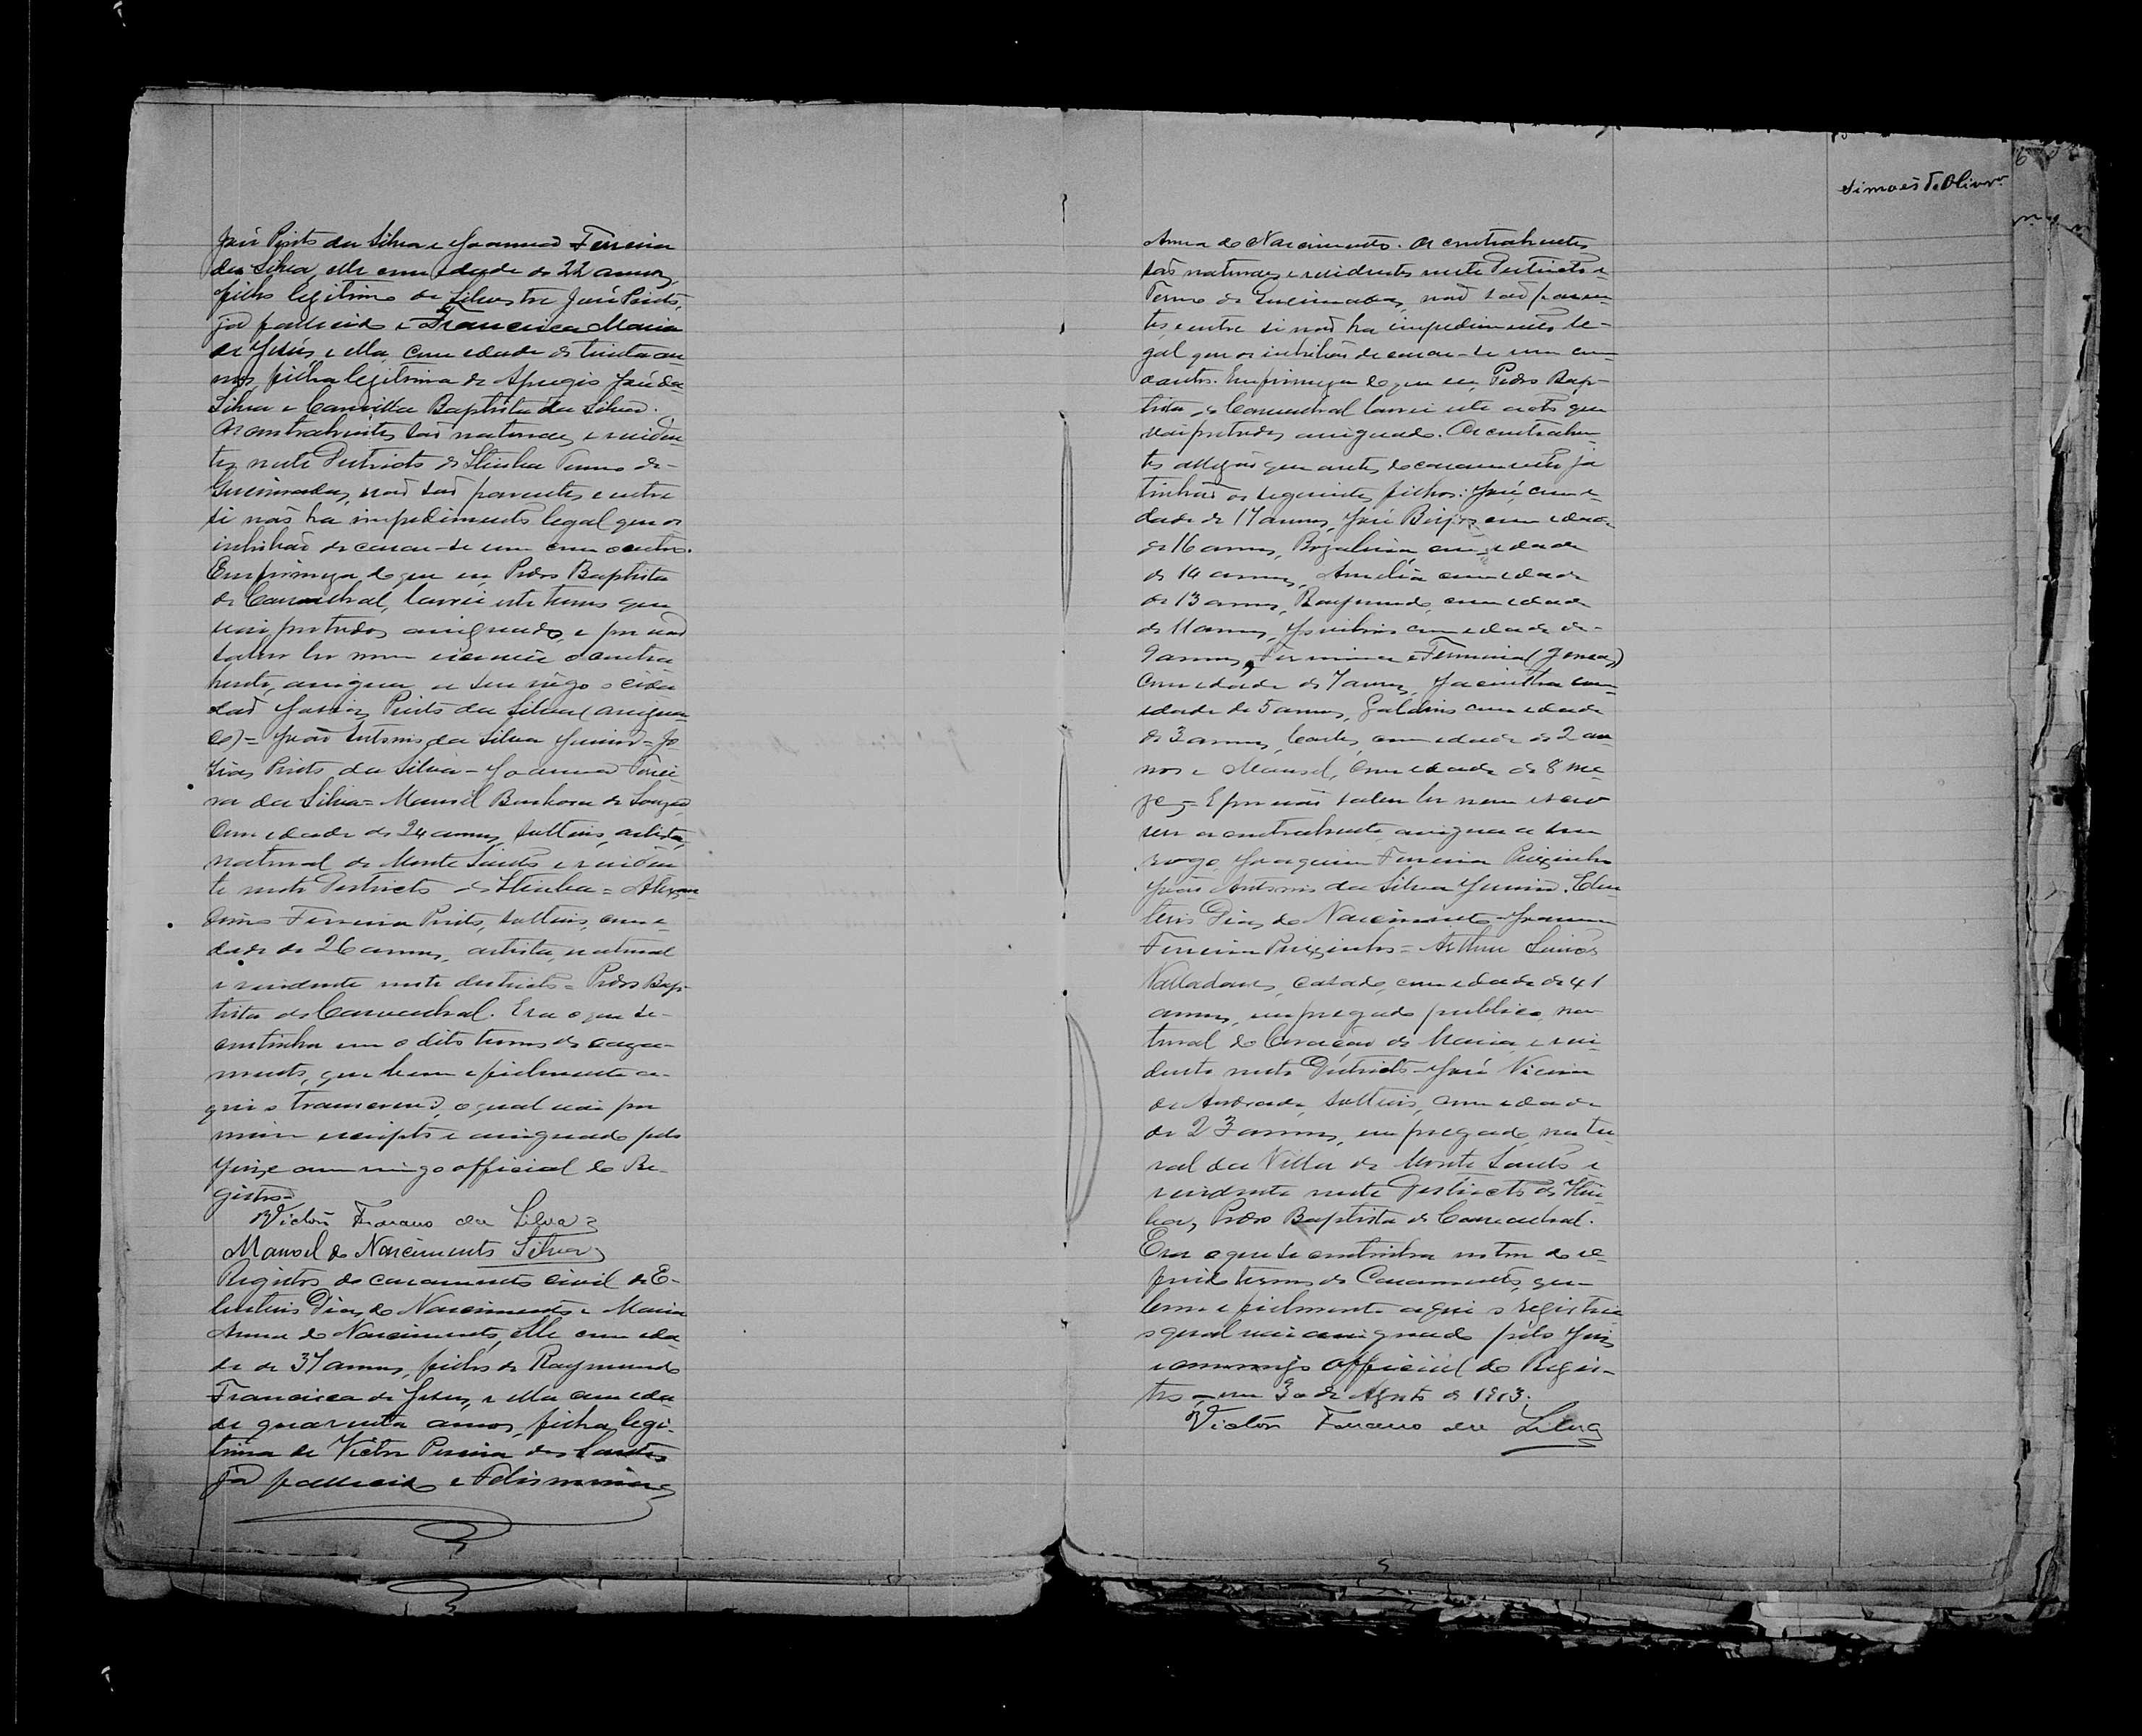 José Pinto da Silva e Joanna Ferreira
da Silva, elle com idade de 22 annos,
filho legitimo de Silvestre José Pinto,
já fallecido e Francisca Maria
de Jesús, e ella, com edade de trinta an-
nos, filha legitima de Aprigio José da
Silva e Camilla Baptista da Silva.
Os contrahentes são naturaes e residen-
tes neste Districto de Itiúba Termo de-
Queimadas, não são parentes e entre
si não ha impedimento legal que os
inhibão de casar-se um com o outro.
Em firmeza do que eu, Pedro Baptista
de Carvalhal, lavrei este termo que
vai por todos assignado, e por não
saber ler nem escrever o contra
hente, assigna a seu rogo o cida
dão Josias Pinto da Silva (assigna
do) = João Antonio da Silva Junior = Jo
sias Pinto da Silva = Joanna Ferrei-
ra da Silva = Manoel Barbosa de Souza,
com edade de 24 annos, solteiro, artista,
natural de Monte Santo e residen
te neste Districto de Itiuba = Alexan
drino Ferreira Pinto, solteiro, com e-
dade de 26 annos, artista, natural
e residente neste districto = Pedro Bap-
tista de Carvalhal. Era o que se-
continha em o dito termo de casa-
mento, que bem e fielmente a-
qui o transcrevi, o qual vai por
mim escripto e assignado pelo
Juiz commigo official do Re-
gistro=
Victor Ferraro da Silva
Manoel do Nascimento Silva
Registro do casamento civil de E-
leuterio Dias do Nascimento e Maria
Anna do Nascimento, elle com ida
de de 37 annos, filho de Raymunda
Francisca de Jesus, e ella com eda
de quarenta annos, filha legi-
tima de Victor Pereira dos Santos
já fallecido e Felismina
Simões de Olivra
Anna do Nascimento. Os contrahentes
são naturaes e residentes neste Districto e
Termo de Queimadas, não são paren
tes e entre si não ha impedimento le-
gal que os inhibão de casar-se um com
o outro. Em firmeza do que eu, Pedro Bap-
tista de Carvalhal lavrei este acto que
vai por todos assignado. Os contrahen-
tes allegão que antes do casamento já
tinhão os seguintes filhos: José, com e-
dade de 17 annos, José com edade
de 16 annos, com edade
de 14 annos, Amelia com edade
de 13 annos, Raymundo, com edade
de 11 annos, com edade de-
9 annos, Firmina e Firmina (gemeas)
com edade de 7 annos, Jacintha com
edade de 5 annos, Galdino com edade
de 3 annos, Carlos, com edade de 2 an-
nos e Manoel, com edade de 8 me-
zes = E por não saber ler nem escre
ver a contrahente assigna a seu
rogo Joaquim Ferreira Peixinho
João Antonio da Silva Junior. Eleu
terio Dias do Nascimento = Joaquim
Ferreira Peixinho = Arthur Simões
Valladares, casado, com edade de 41
annos, empregado publico, na
tural do Coração de Maria, e resi-
dente neste Districto = José Vieira
de Andrade, solteiro, com edade
de 23 annos, empregado, natu-
ral da Villa de Monte Santo e
residente neste Districto de Itiu
ba, Pedro Baptista de Carvalhal.
Era o que se continha no tor do re-
ferido termo de Casamento, que
bem e fielmente aqui o registrei
o qual vai assignado pelo Juiz
commigo official do Regis-
tro, em 30 de Agosto de 1913.
Victor Ferraro da Silva